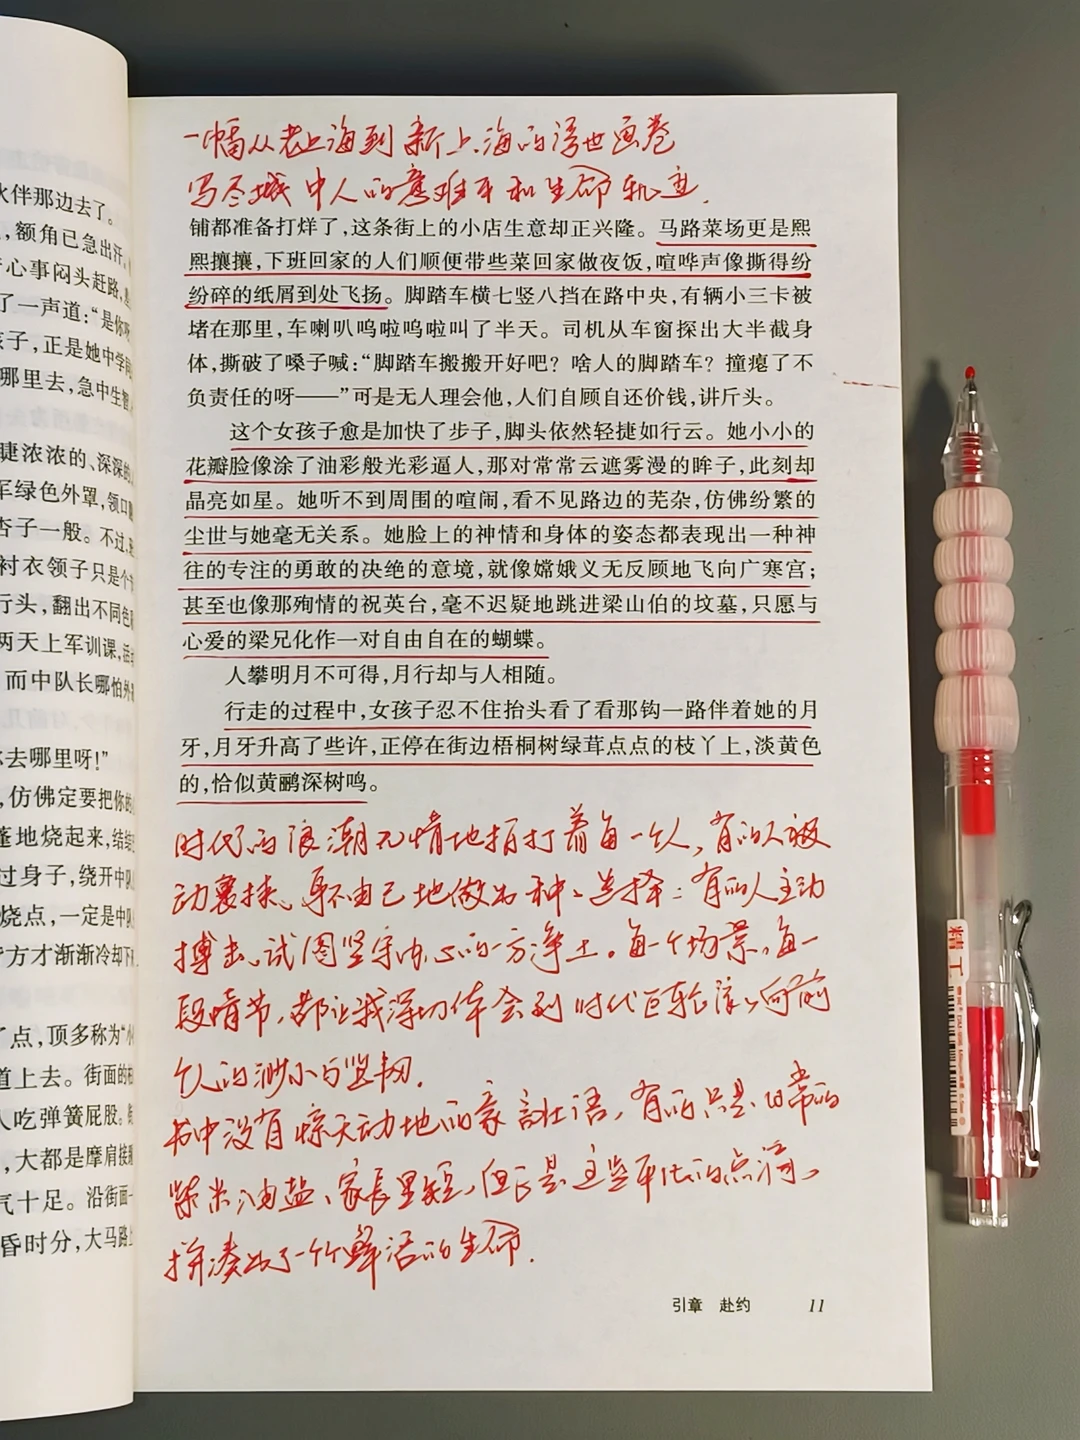 伙伴那边去了。
，额角已急出汗。
心事闷头赶路，
了一声道：“是你呀
孩子，正是她中学同
哪里去，急中生智，
睫浓浓的、深深的
军绿色外罩，领口
杏子一般。不过，
衬衣领子只是个
行头，翻出不同色
两天上军训课，
而中队长哪怕外
去哪里呀！”
，仿佛定要把你的
蓬地烧起来，结结
过身子，绕开中队
烧点，一定是中队
方才渐渐冷却下
了点，顶多称为“小
道上去。街面的
人吃弹簧屁股。
，大都是摩肩接
气十足。沿街面一
昏时分，大马路上
一幅从老上海到新上海的浮世画卷
写尽城中人的意难平和生命轨迹.
铺都准备打烊了，这条街上的小店生意却正兴隆。马路菜场更是熙
熙攘攘，下班回家的人们顺便带些菜回家做夜饭，喧哗声像撕得纷
纷碎的纸屑到处飞扬。脚踏车横七竖八挡在路中央，有辆小三卡被
堵在那里，车喇叭呜啦呜啦叫了半天。司机从车窗探出大半截身
体，撕破了嗓子喊：“脚踏车搬搬开好吧？啥人的脚踏车？撞瘪了不
负责任的呀——”可是无人理会他，人们自顾自还价钱，讲斤头。
这个女孩子愈是加快了步子，脚头依然轻捷如行云。她小小的
花瓣脸像涂了油彩般光彩逼人，那对常常云遮雾漫的眸子，此刻却
晶亮如星。她听不到周围的喧闹，看不见路边的芜杂，仿佛纷繁的
尘世与她毫无关系。她脸上的神情和身体的姿态都表现出一种神
往的专注的勇敢的决绝的意境，就像嫦娥义无反顾地飞向广寒宫；
甚至也像那殉情的祝英台，毫不迟疑地跳进梁山伯的坟墓，只愿与
心爱的梁兄化作一对自由自在的蝴蝶。
人攀明月不可得，月行却与人相随。
行走的过程中，女孩子忍不住抬头看了看那钩一路伴着她的月
牙，月牙升高了些许，正停在街边梧桐树绿茸点点的枝丫上，淡黄色
的，恰似黄鹂深树鸣。
时代的浪潮无情地拍打着每一个人，有的人被
动裹挟、身不由己地做出种种选择；有的人主动
搏击、试图坚守内心的一方净土。每一个场景、每一
段情节，都让我深切体会到时代巨轮滚滚向前
个人的渺小与坚韧.
书中没有惊天动地的豪言壮语，有的只是日常的
柴米油盐、家长里短，但正是这些平凡的点滴，
拼凑出了一个个鲜活的生命.
引章 赴约 11
精工